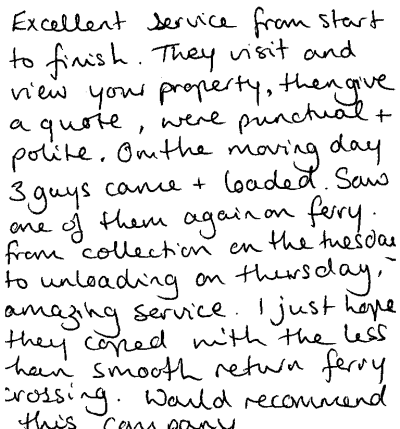 Excellent service from start
to finish. They visit and
view your property, then give
a quote, were punctual +
polite. On the moving day
3 guys came + loaded. Saw
one of them again on ferry.
from collection on the tuesday
to unloading on thursday,
amazing service. I just hope
they coped with the less
than smooth return ferry
crossing. Would recommend
this company